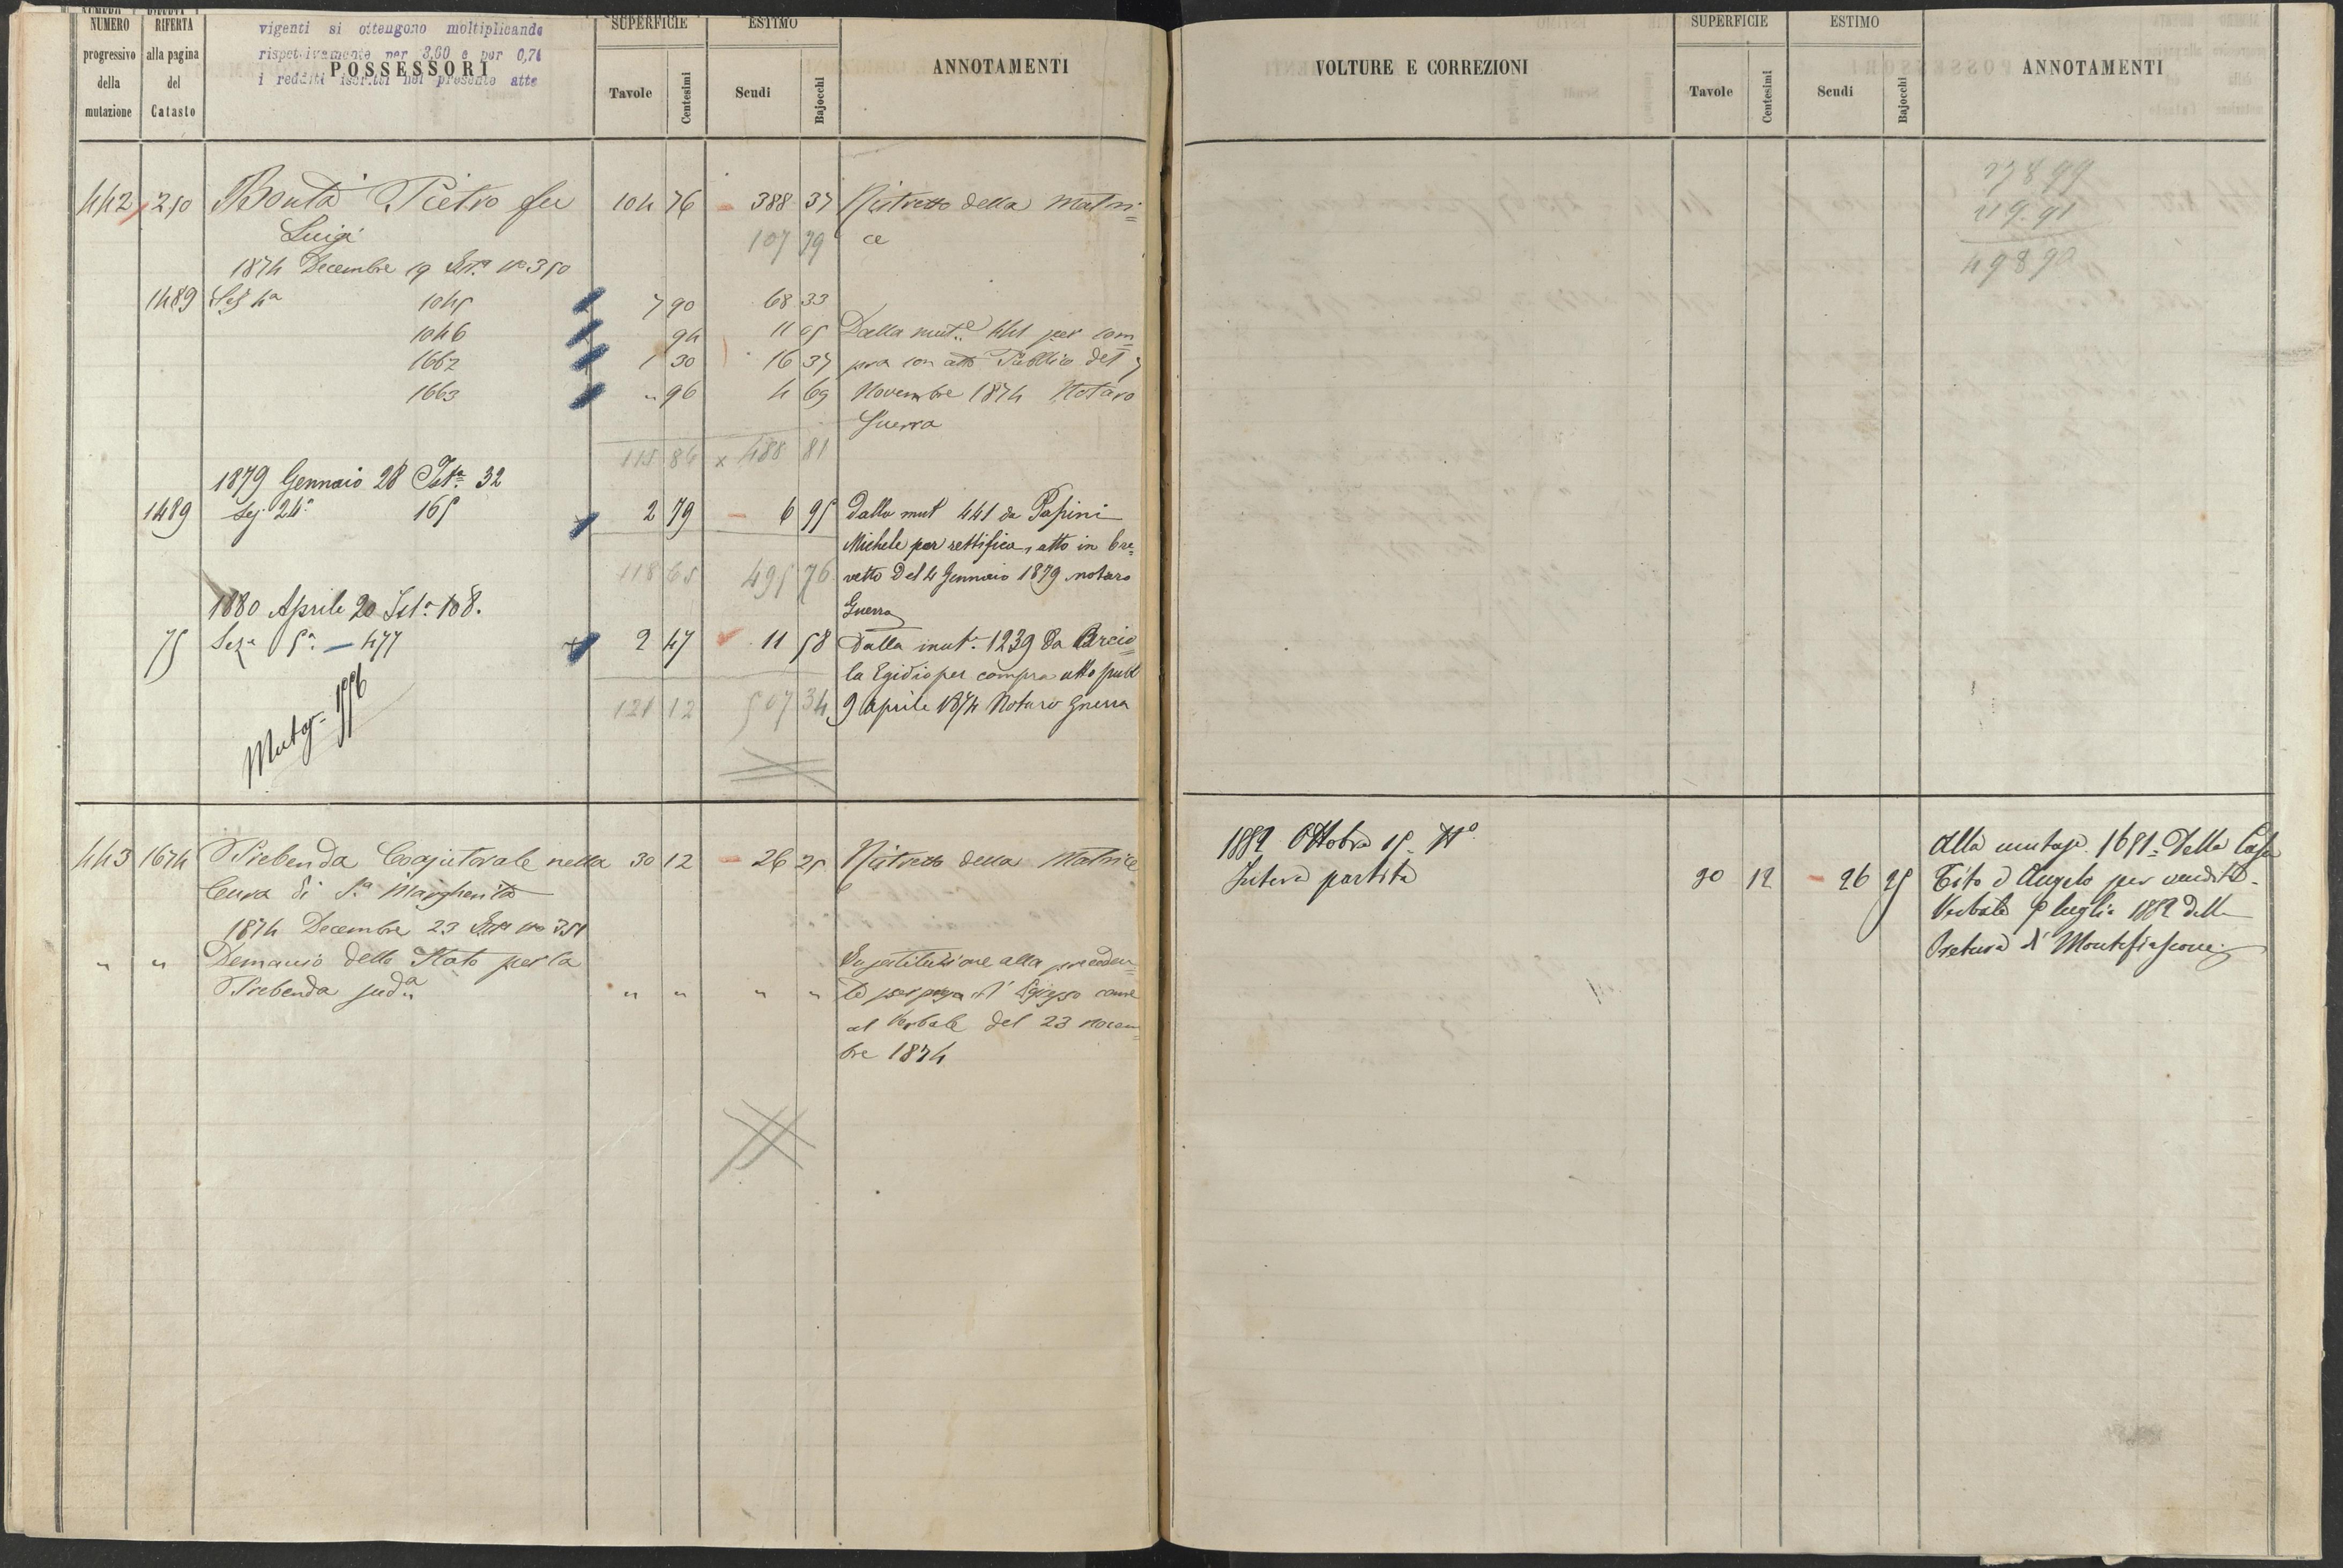 NUMERO RIFERTA vigenti si ottengono moltiplicando SUPERFICIE ESTIMO
progressivo alla pagina rispettivamente per 3,00 e per 0,71
della del POSSESSORI ANNOTAMENTI
i redditi iscritti nel presente atto
mutazione Catasto Tavole Centesimi Scudi Bajocchi
442 250 Bontà Pietro fu 104 76 388 37 Ristretto della Matri=
Luigi 107 79 ce
1874 Decembre 19 Ist.a No 350
1489 Sez 4a 1045 7 90 68 33
1046 94 11 05 Dalla mut.e 441 per com=
1662 1 30 16 37 pra con atto Pubblico del 7
1663 " 96 4 69 Novembre 1874 Notaro
Guerra
115 86 x 488 81
1879 Gennaio 28 Ist.a 32
1489 Sez. 24a 165 2 79 6 95 Dalla mut 441 da Papini
Michele per rettifica, atto in bre=
118 65 495 76 vetto del 4 Gennaio 1879 notaro
Guerra
1880 Aprile 20 Ist.a 108.
75 Sez.a 5a. — 477 2 47 11 58 Dalla mut.e 1239 da
la Egidio per compra atto pubb
121 12 507 34 9 Aprile 1874 Notaro Guerra
443 1674 Prebenda Coajutorale nella 30 12 26 25 Ristretto della Matrice
Cura di S.a Margherita
1874 Decembre 23 Ist.a No 351
" " Demanio dello Stato per la In sostituzione alla preceden=
Prebenda sud.a " " " " te per presa di possesso come
al Verbale del 23 Novem=
bre 1874
SUPERFICIE ESTIMO
VOLTURE E CORREZIONI ANNOTAMENTI
Tavole Centesimi Scudi Bajocchi
278 99
219 91
498 90
1882 Ottobre 15
Intera partita 30 12 26 25
Alla mutaz. 1651 Della Casa
Tito d'Angelo per vendita
Verbale luglio 1882 della
Pretura di Montefiascone